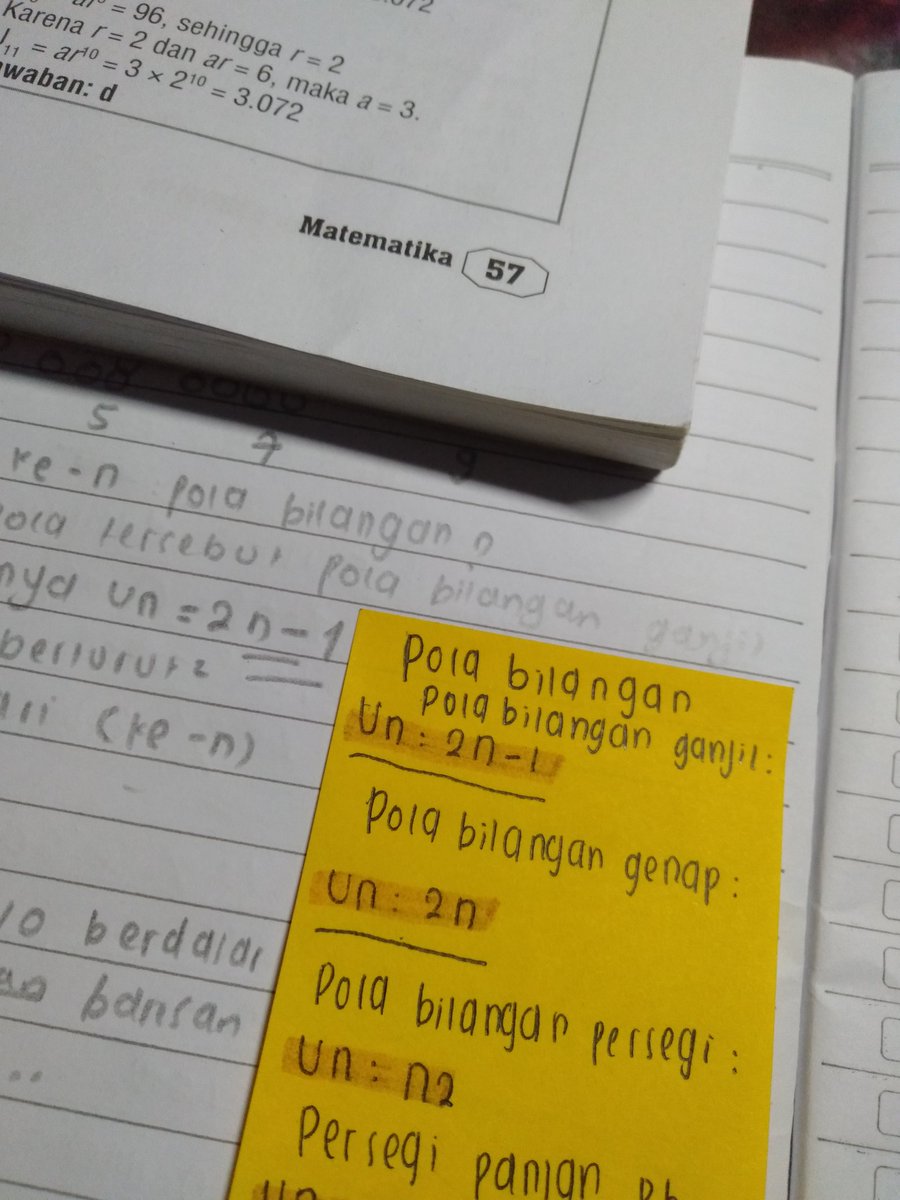 3.072
= 96, sehingga r = 2
Karena r = 2 dan ar = 6, maka a = 3.
₁₁ = ar¹⁰ = 3 × 2¹⁰ = 3.072
waban: d
Matematika 57
5 7 9
ke-n pola bilangan
tersebut pola bilangan ganjil
nya Un = 2n-1
berurut2
(ke-n)
Pola bilangan
Pola bilangan ganjil:
Un: 2n-1
Pola bilangan genap:
Un: 2n
Pola bilangan persegi:
Un: n2
Persegi panjan
Un